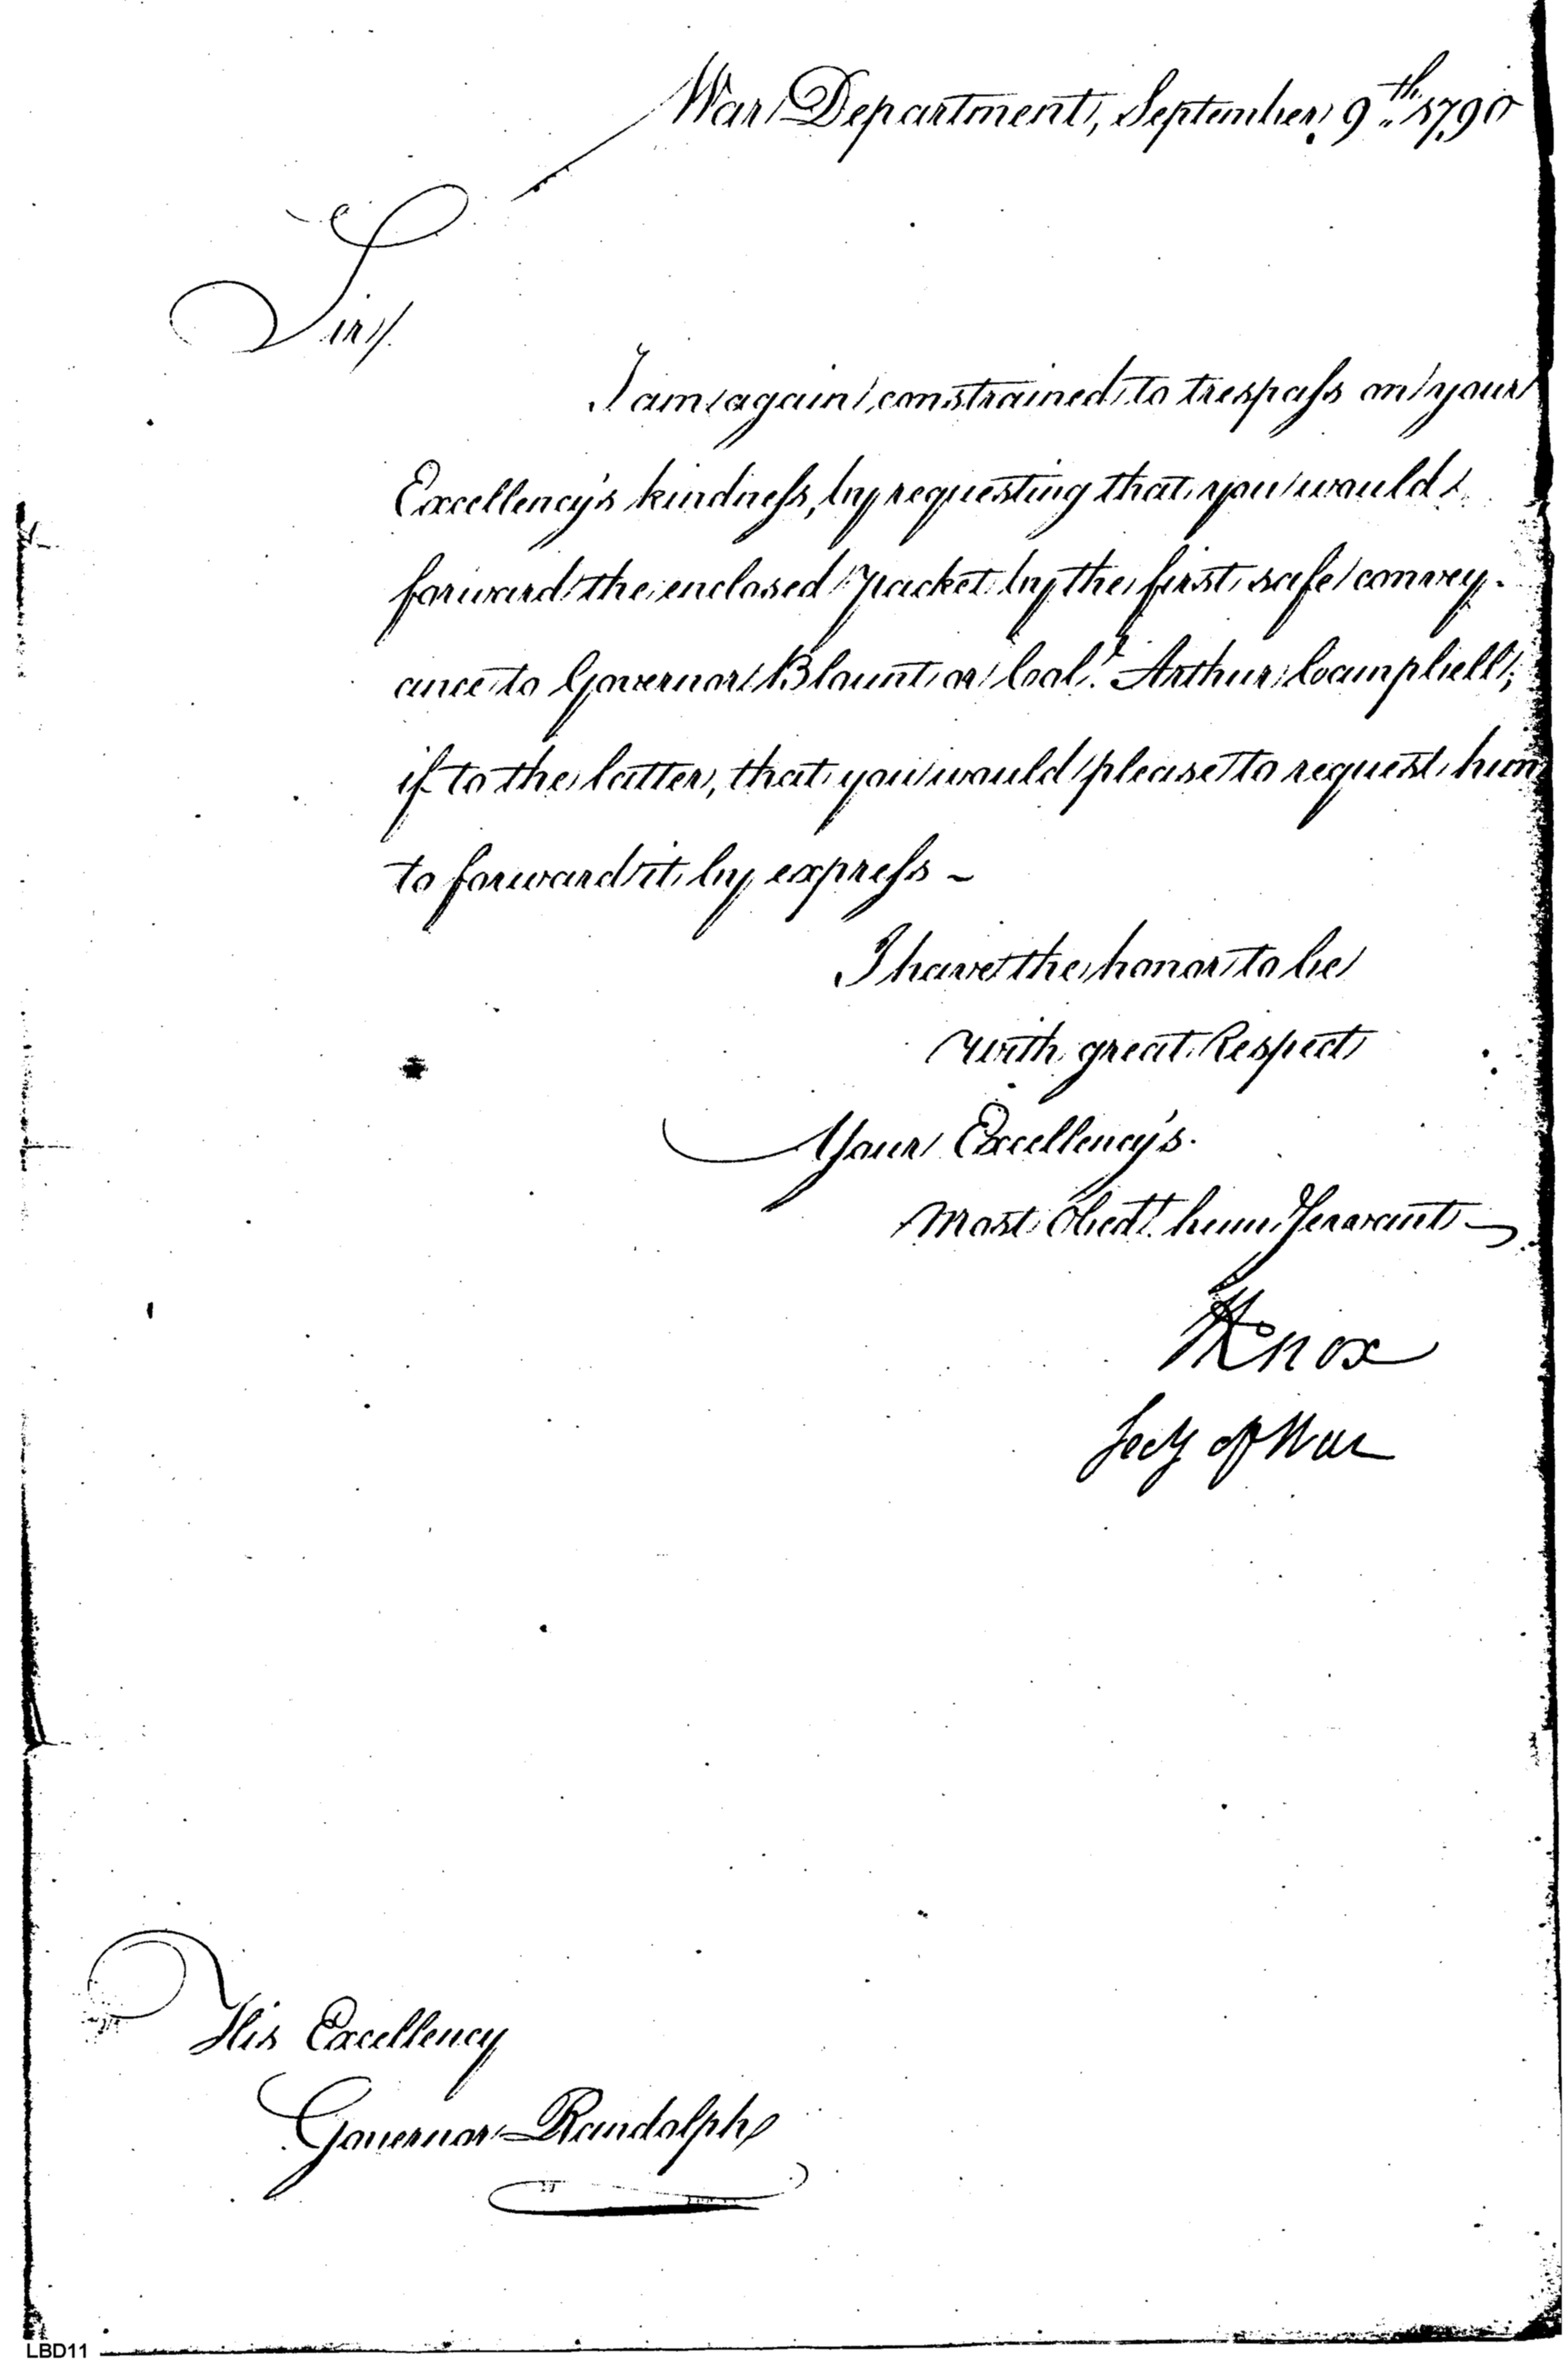 War Department, September 9th 1790
Sir,
I am again constrained to trespass on your
Excellency's kindness, by requesting that you would
forward the enclosed packet by the first safe convey-
ance to Governor Blount or Colo. Arthur Campbell;
if to the latter, that you would please to request him
to forward it by express –
I have the honor to be
with great Respect
Your Excellency's
most Obedt. hum. Servant
HKnox
Secy of War
His Excellency
Governor Randolph
LBD11